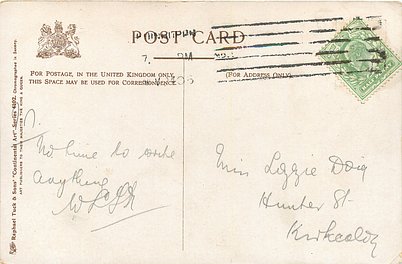 POST CARD
FOR POSTAGE, IN THE UNITED KINGDOM ONLY,
THIS SPACE MAY BE USED FOR CORRESPONDENCE
(FOR ADDRESS ONLY)
Raphael Tuck & Sons' "Continental Art" Series 4692.
No time to write
anything
Miss Lizzie Doig
Hunter St
Kirkcaldy